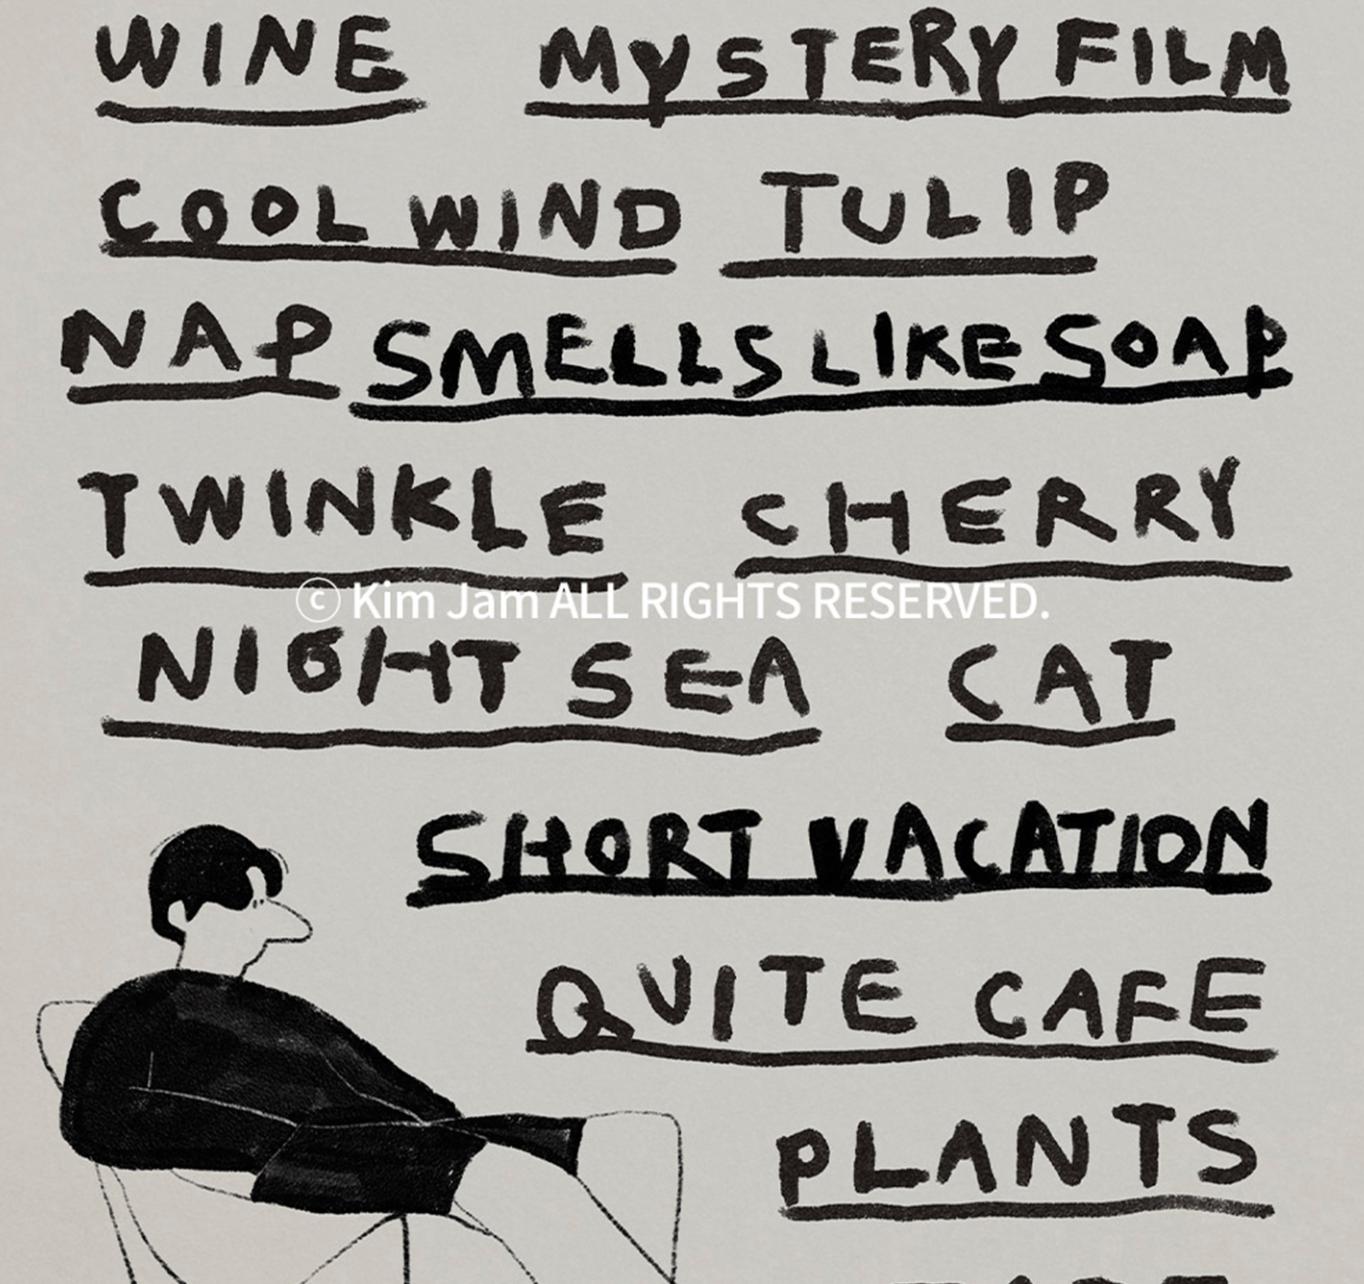 WINE MYSTERY FILM
COOL WIND TULIP
NAP SMELLS LIKE SOAP
TWINKLE CHERRY
© Kim Jam ALL RIGHTS RESERVED.
NIGHT SEA CAT
SHORT VACATION
QUITE CAFE
PLANTS